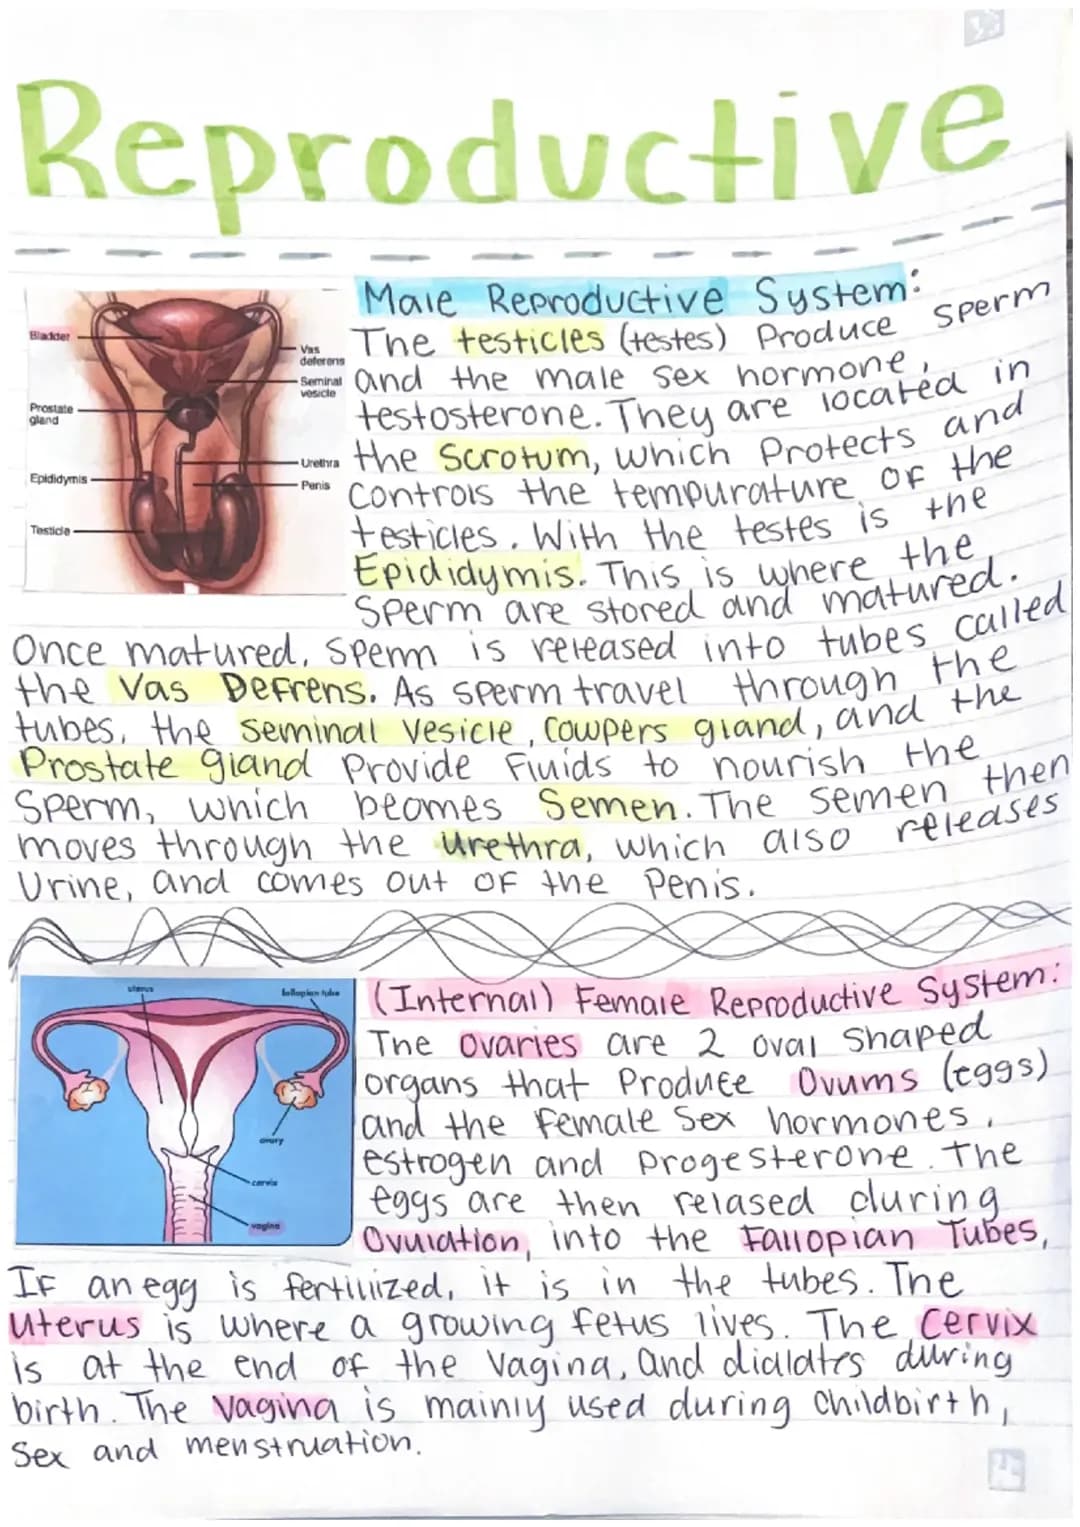 Reproductive
Bladder
Prostate
gland
Epididymis
Testicle
Vas
deferens
Seminal
vesicle
Urethra
Penis
Male Reproductive System:
The testicles (testes) Produce sperm
and the male sex hormone,
testosterone. They are located in
the Scrotum, which Protects and
Controls the tempurature of the
testicles. With the testes is the
Epididymis. This is where the
Sperm are stored and matured.
Once matured, sperm is released into tubes called
the Vas Defrens. As sperm travel through the
tubes, the Seminal Vesicle, Cowpers gland, and the
Prostate gland Provide Fluids to nourish the
Sperm, which beomes Semen. The semen then
moves through the Urethra, which also releases
Urine, and comes out OF the Penis.
uterus
fallopian tube
ovary
cervix
vagina
(Internal) Female Reproductive System:
The Ovaries are 2 oval Shaped
organs that Produce Ovums (eggs)
and the Female Sex hormones,
estrogen and progesterone. The
eggs are then relased during
Ovulation, into the Fallopian Tubes,
IF an egg is fertilized, it is in the tubes. The
Uterus is where a growing fetus lives. The Cervix
is at the end of the Vagina, and dialates during
birth. The Vagina is mainly used during Childbirth,
Sex and menstruation.